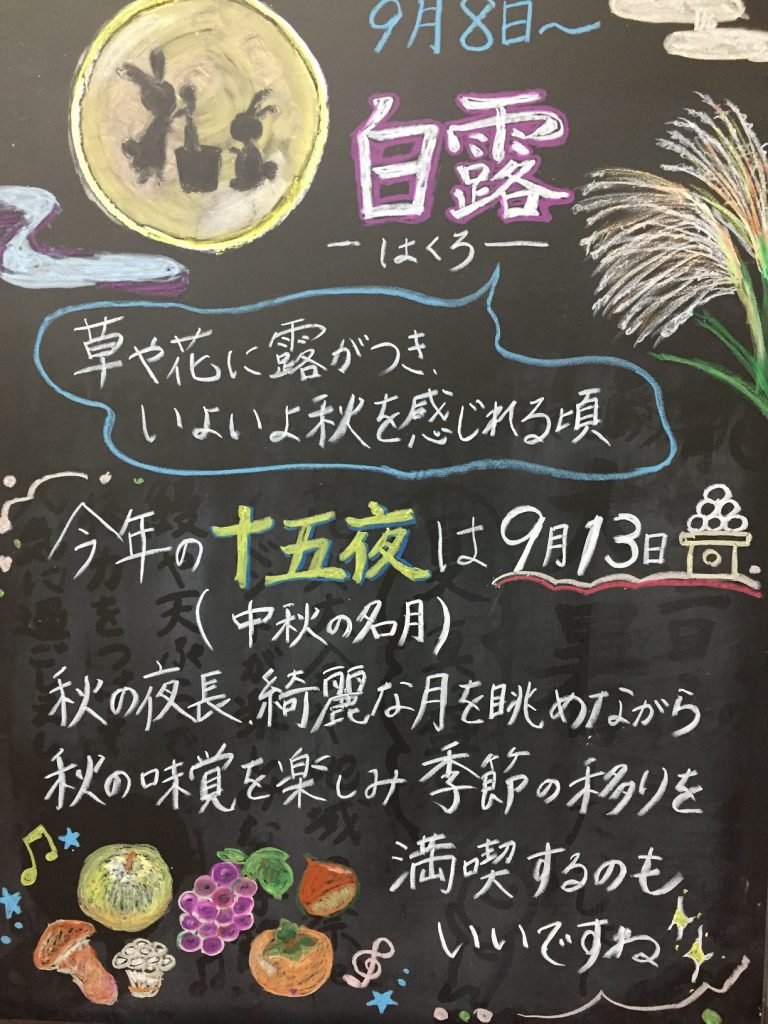 9月8日～
白露
―はくろ―
草や花に露がつき、
いよいよ秋を感じれる頃
今年の十五夜は9月13日
(中秋の名月)
秋の夜長、綺麗な月を眺めながら
秋の味覚を楽しみ 季節の移りを
満喫するのも
いいですね